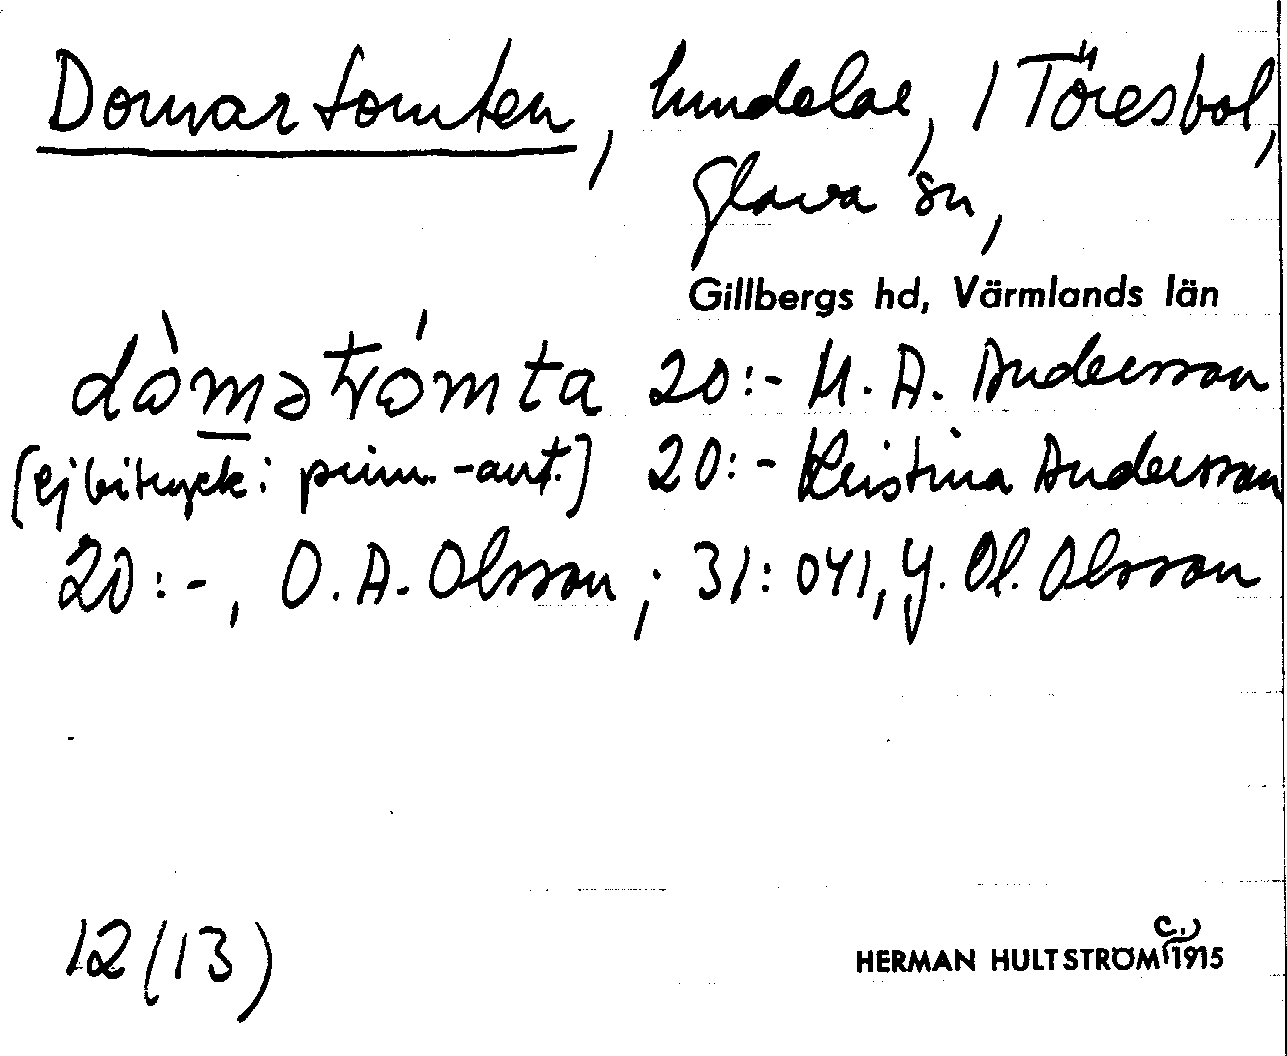 Domartomten, lundelar, 1 Töresbol,
Glava sn,
Gillbergs hd, Värmlands län
dòmətómta 20:- M. A. Andersson
[ej bitryck i prim. -ant.] 20:- Kristina Andersson
20:-, O. A. Olsson; 31:041, Y. Ol. Olsson
12(13)
HERMAN HULTSTRÖM 1915